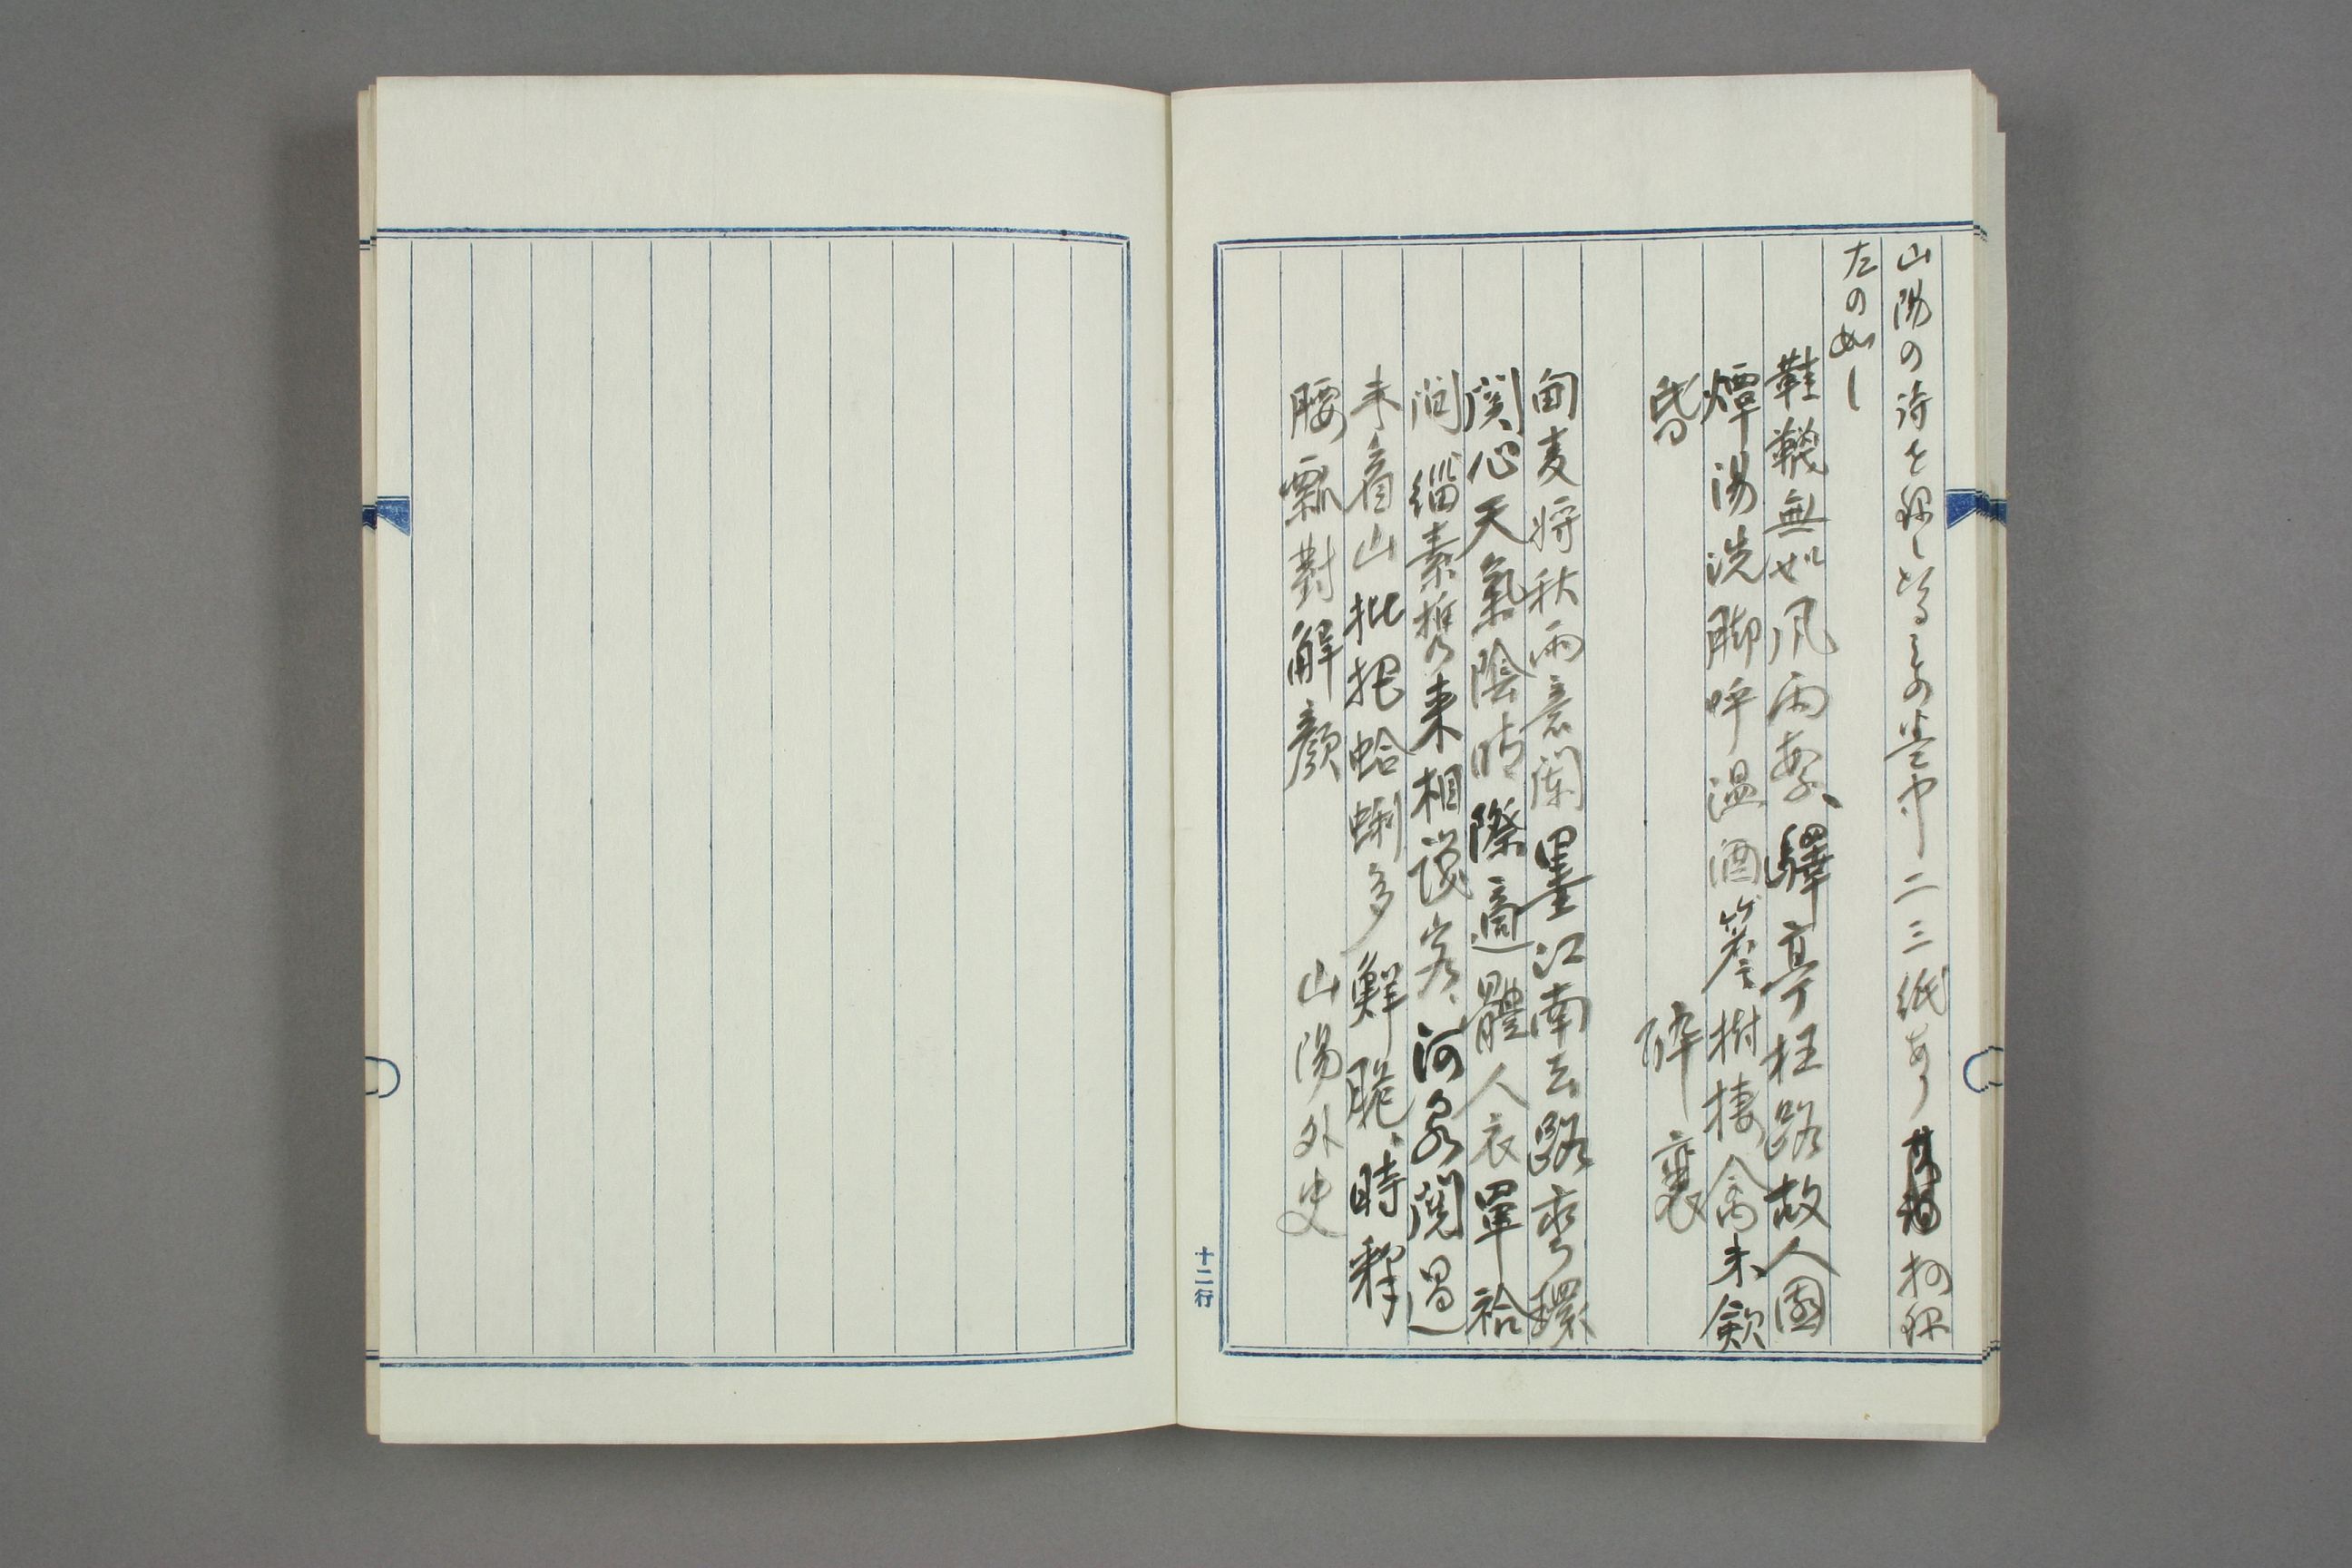 山陽の詩を録しあるもの座中二三紙あり 抄録
左の如し
鞋韈無如風雨繁驛亭枉路故人園
燂湯洗脚呼温酒簷樹棲禽未歛
昏 醉襄
甸麦将秋雨意闌墨江南去路弯環
関心天氣陰晴際適體人衣單袷
間緇素携来相識客河泉閲過
未看山批把蛤蜊多鮮脆時釋
腰瓢對解顔 山陽外史
十二行